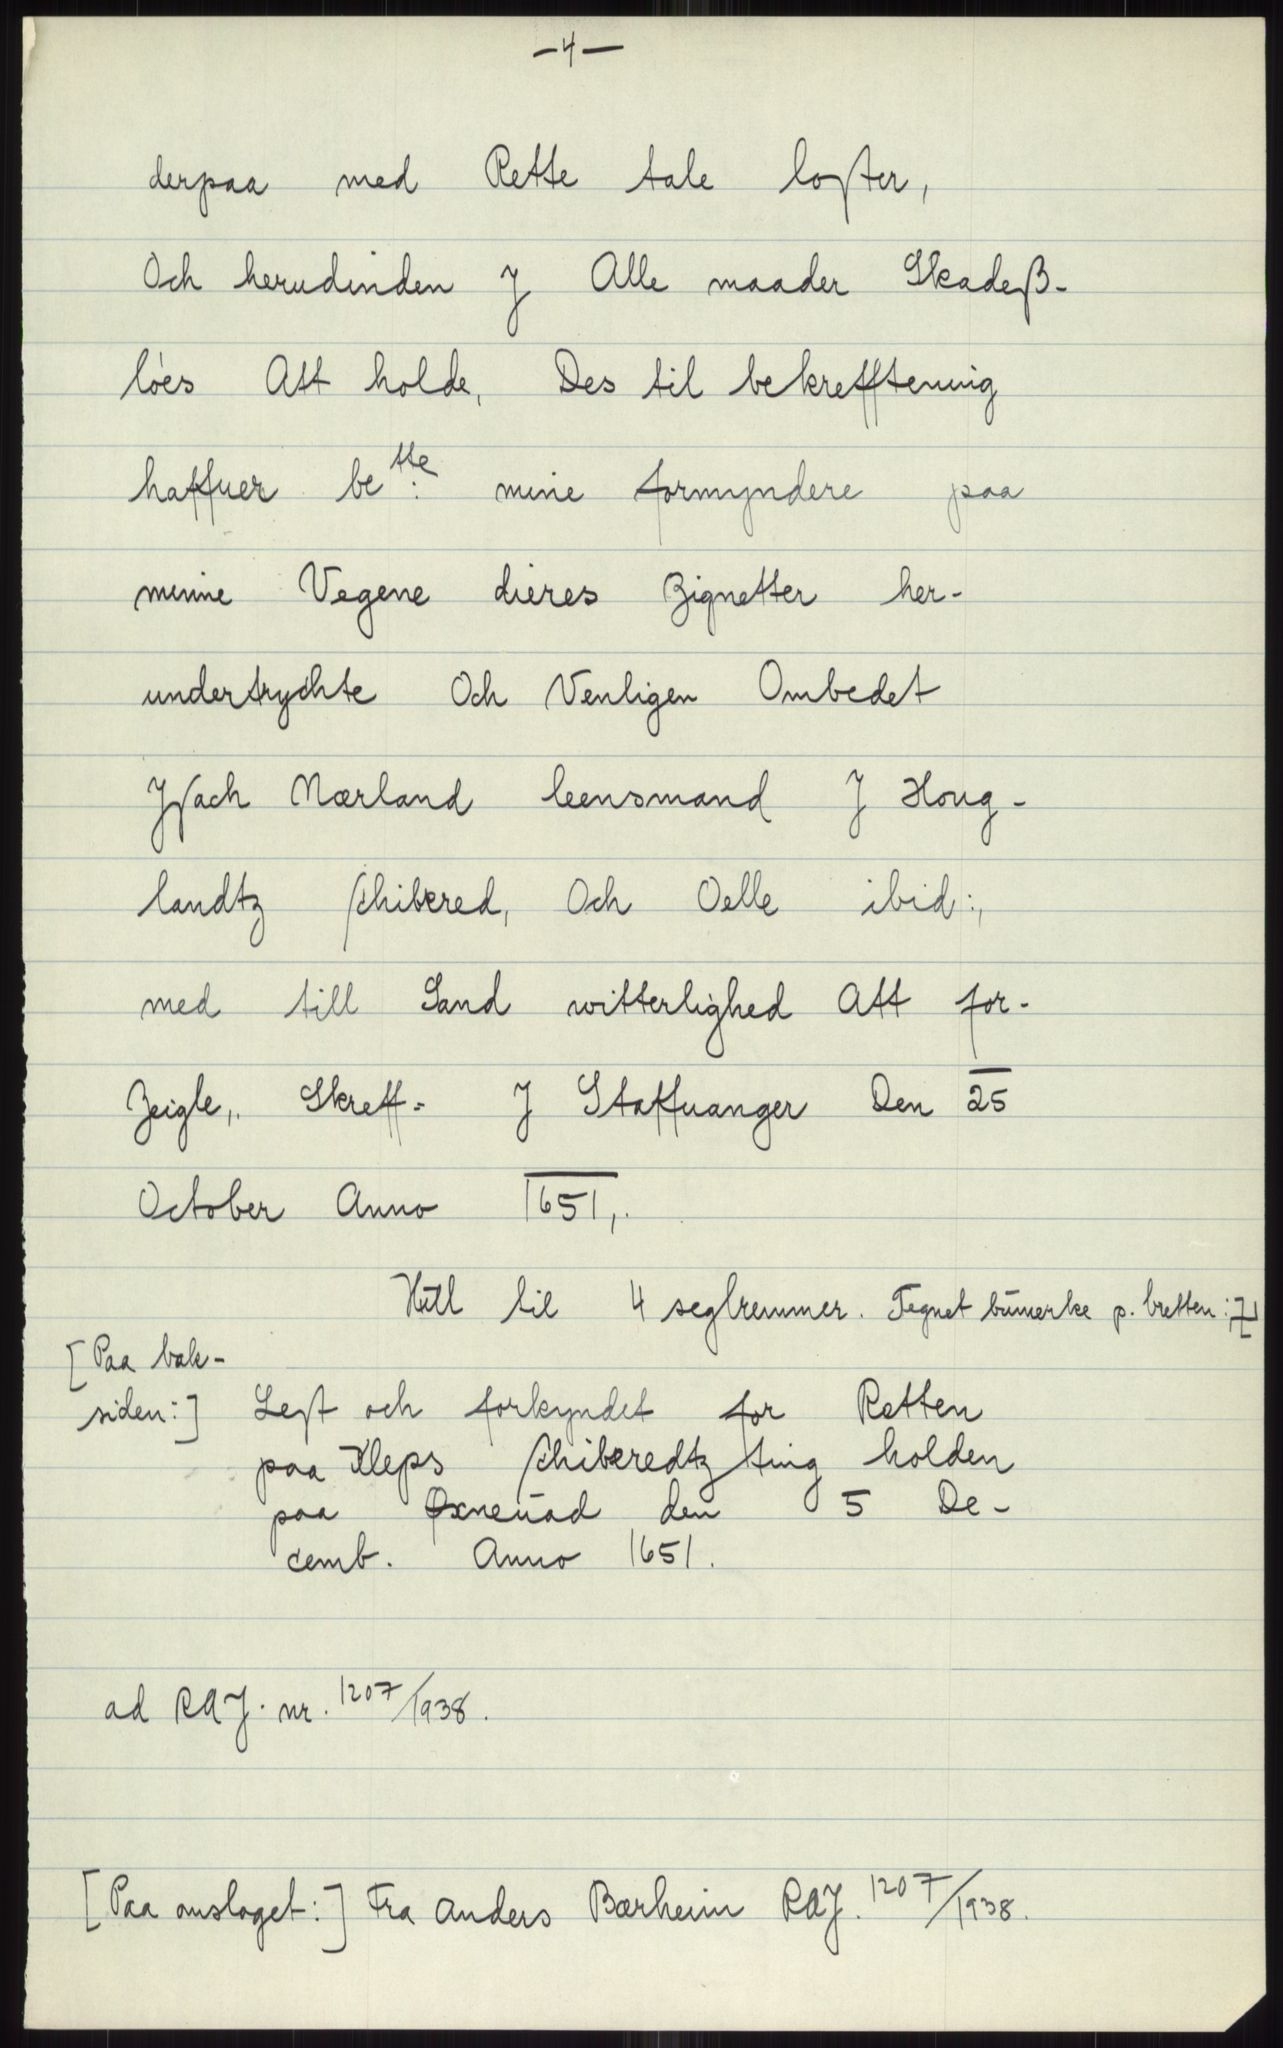 —4—
derpaa med Rette tale loſter,
Och herudinden J Alle maader Skadeß-
lóes Att holde, Des til bekrefftening
haffuer be tte: mine formyndere paa
minne Vegene dieres Zignetter her-
undertrychte Och Venligen Ombedet
Jſach Nærland leensmand J Houg-
landtz ſchibered, Och Oelle ibid:,
med till Sand witterlighed Att for-
Zeigle,. Skreff: J Staffuanger Den 25
October Anno 1651,.
Hull til 4 seglremmer. Tegnet bumerke p. bretten:
[Paa bak-
siden:] Leſt och forkyndet for Retten
paa Kleps ſchiberedtz ting holden
paa Øxneuad den 5 De-
cemb. Anno 1651.
ad RAJ. nr. 1207/1938.
[Paa omslaget:] Fra Anders Bærheim RAJ. 1207/1938.